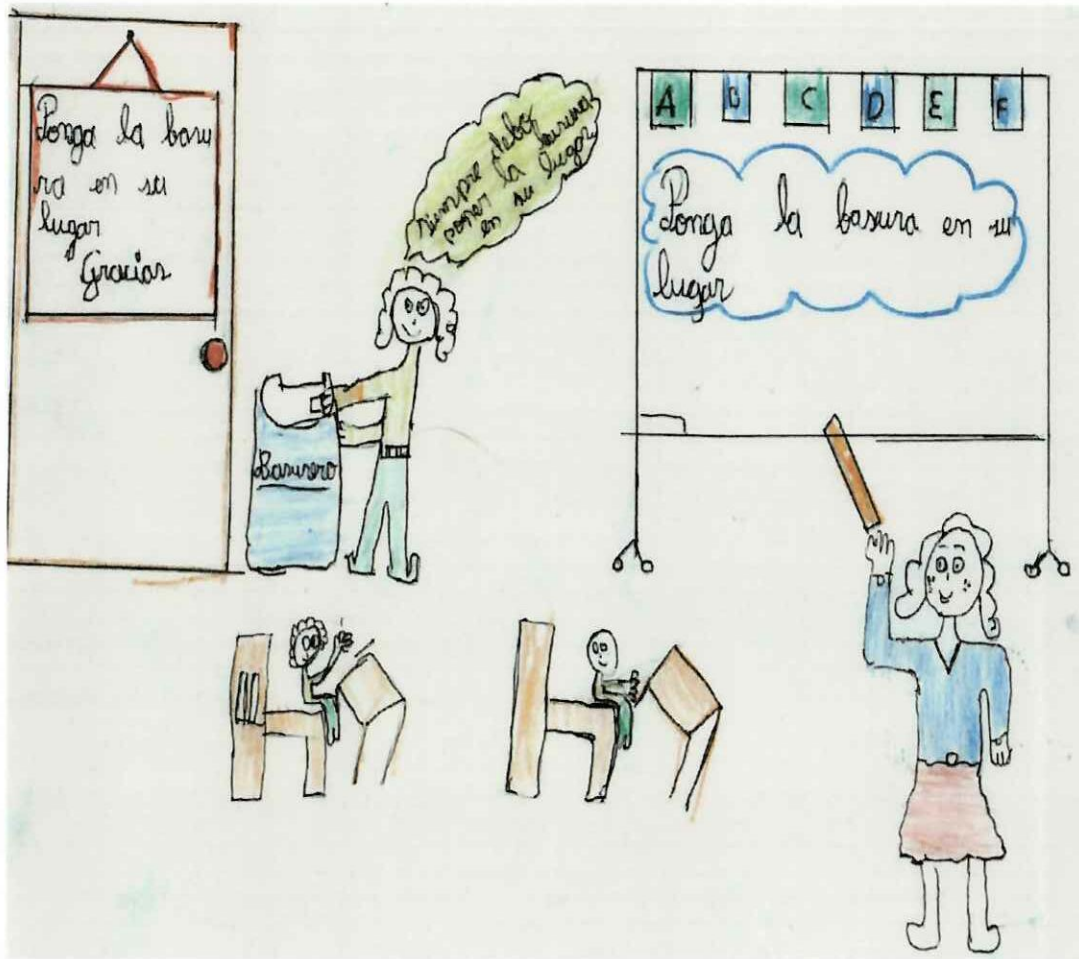 Ponga la basu
ra en su
lugar
Gracias
siempre debo
poner la basura
en su lugar
Basurero
A B C D E F
Ponga la basura en su
lugar